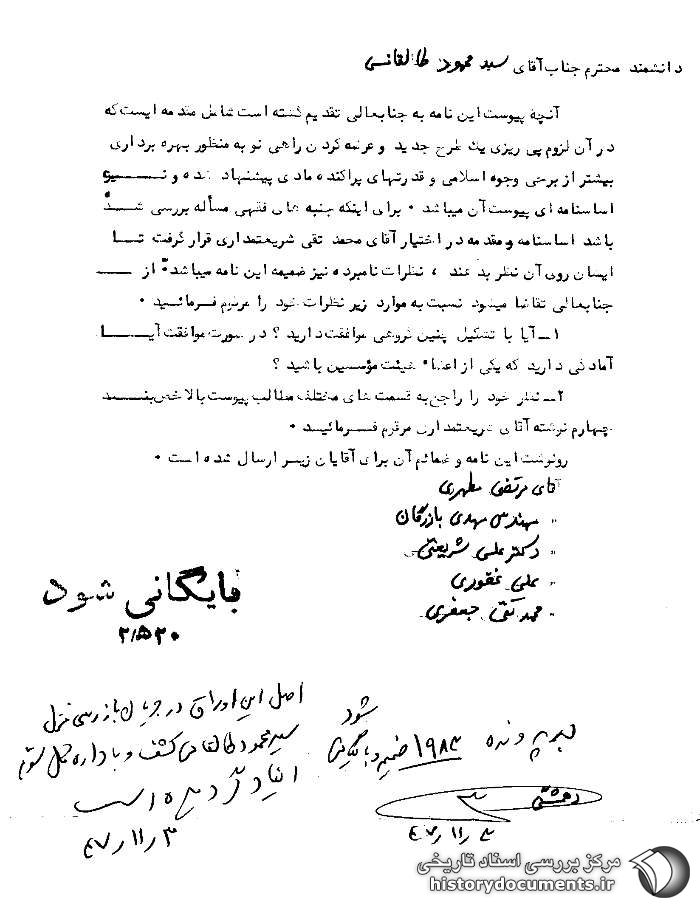 دانشمند محترم جناب آقای سید محمود طالقانی
آنچه پیوست این نامه به جنابعالی تقدیم گشته است شامل مقدمه ایست که
در آن لزوم پی ریزی یك طرح جدید و عرضه کردن راهی نو به منظور بهره برداری
بیشتر از برخی وجوه اسلامی و قدرتهای پراکنده مادی پیشنهاد شده و نیــــز
اساسنامه ای پیوست آن میباشد ۰ برای اینکه جنبه های فقهی مسأله بررسی شــدّ
باشد اساسنامه و مقدمه در اختیار آقای محمد تقی شریعتمداری قرار گرفت تـــا
ایشان روی آن نظر بدهند ، نظرات نامبرده نیز ضمیمه این نامه میباشد ۰ از ــــ
جنابعالی تقاضا میشود نسبت به موارد زیر نظرات خود را مرقوم فــرمائـیـد ۰
۱ــ آیا با تشکیل چنین گروهی موافقت دارید ؟ در صورت موافقت آیـــــا
آمادگی دارید که یکی از اعضاء هیئت مؤسسین باشید ؟
۲ــ نظر خود را راجع به قسمت های مختلف مطالب پیوست بالاخص بنـــــد
چهارم نوشته آقای شریعتمداری مرقوم فــرمائیـد ۰
رونوشت این نامه و ضمائم آن برای آقایان زیـر ارسال شده است ۰
آقای مرتضی مطهری
" مهندس مهدی بازرگان
" دکتر علی شریعتی
" علی غفوری
" محمد تقی جعفری
بایگانی شود
۲/۵۳۰
اصل این اوراق در جریان بازرسی منزل
سید محمود طالقانی کشف و به اداره کل سوم
ارسال گردیده است
۴۷/۱۱/۳
به پرونده ۱۹۸۳ ضمیمه و بایگانی
شود
۴۷/۱۱/۳
مرکز بررسی اسناد تاریخی
historydocuments.ir